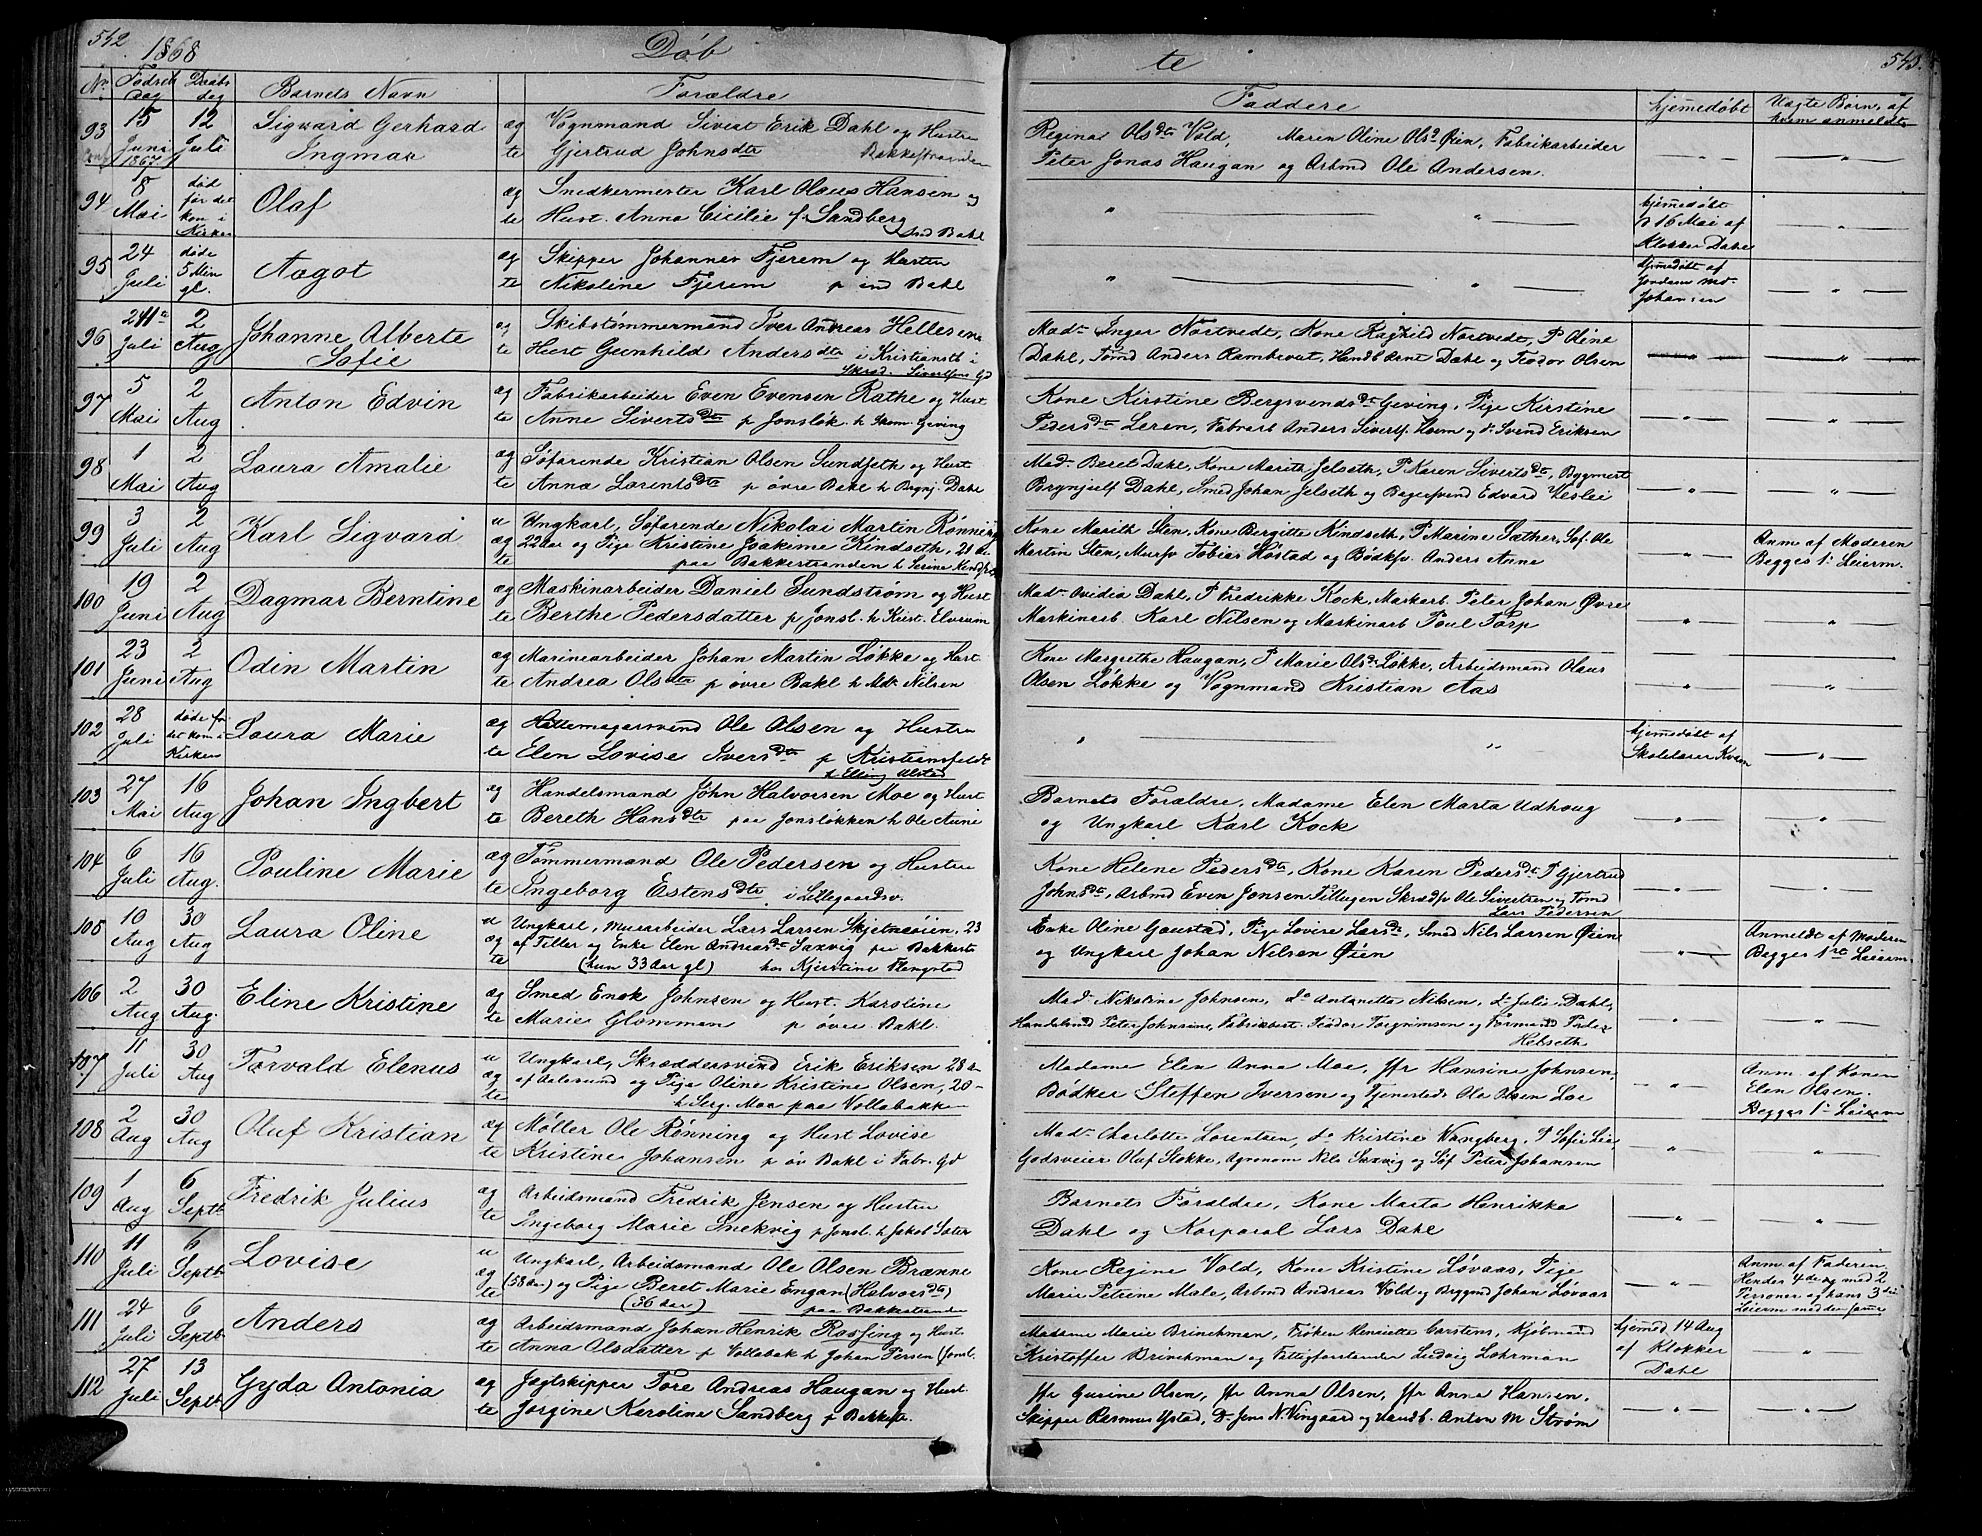 542 1868 Døb
No Fødsels Dag Daabs dag Barnets Navn Forældre
93 15 Juni 1867 12 Juli Sigvard Gerhard Ingmar ægte Vognmand Sivert Erik Dahl og Hustru
Gjertrud Johnsdtr Bakkestranden
94 8 Mai død før det kom i Kirken Olaf ægte Snedkermester Karl Olaus Hansen og
Hust. Anna Cicilie f. Sandberg Ind Bakl
95 24 Juli døde 5 Min gl. Aagot ægte Skipper Johannes Fjerem og Hustru
Nikoline Fjerem p ind Bakl
96 Juli 2 Aug Johanne Alberte Sofie ægte Skibstømmermand Iver Andreas Hellesene
Hust Gunhild Andersdtr i Kristiansth i
Skræd. Sivertsens Gd
97 5 Mai 2 Aug Anton Edvin ægte Fabrikarbeider Even Evensen Rathe og Hust
Anne Sivertsdtr p Jonsløk. h Skom. Geving
98 1 Mai 2 Aug Laura Amalie ægte Søfarende Kristian Olsen Sundseth og Hust
Anna Lorentsdtr p øvre Bakl h Brynj. Dahl
99 3 Juli 2 Aug Karl Sigvard uægte Ungkarl, Søfarende Nikolai Martin Rønning
22 Aar og Pige Kristine Joakime Kindseth, 21 Ar
paa Bakkestranden h Serine Kindseth
100 19 Juni 2 Aug Dagmar Berntine ægte Maskinarbeider Daniel Sundstrøm og Hust
Berthe Pedersdatter p Jonsl. h Kust. Elvrum
101 23 Juni 2 Aug Odin Martin ægte Marinearbeider Johan Martin Løkke og Hust
Andrea Olsdtr p øvre Bakl h Md. Nilsen
102 28 Juli døde før det kom i Kirken Laura Marie ægte Hattemagersvend Ole Olsen og Hustru
Elen Lovise Iversdtr p Kristiansfeldt
h Elling Ulstad
103 27 Mai 16 Aug Johan Ingbert ægte Handelsmand John Halvorsen Moe og Hust
Bereth Hansdtr paa Jonsløkken h Ole Aune
104 6 Juli 16 Aug. Pauline Marie ægte Tømmermand Ole Pedersen og Hustru
Ingeborg Estensdtr i Lillegaardsv.
105 10 Aug 30 Aug Laura Oline uægte Ungkarl, Murarbeider Lars Larsen Skjetneøien, 23
af Tiller og Enke Elen Andreasdtr Saxvig paa Bakkestr
(hun 33 Aar gl) hos Kjerstine Flengstad
106 2 Aug 30 Aug. Eline Kristine ægte Smed Enok Johnsen og Hust. Karoline
Marie Glommen p øvre Bakl.
107 11 Juli 30 Aug Torvald Elenus uægte Ungkarl, Skræddersvend Erik Eriksen 28 a
af Aalesund og Pige Oline Kristine Olsen, 20 -
h Serg. Moa paa Vollabakken
108 2 Aug 30 Aug Oluf Kristian ægte Møller Ole Rønning og Hust Lovise
Kristine Johansen p øv Bakl i Fabr. Gd
109 1 Aug 6 Septb Fredrik Julius ægte Arbeidsmand Fredrik Jensen og Hustru
Ingeborg Marie Snekvig p Jonsl. h Jakob Sæter
110 11 Juli 6 Septb. Lovise uægte Ungkarl, Arbeidsmand Ole Olsen Brænne
(58 Aar) og Pige Beret Marie Engan (Halvorsdtr)
(36 Aar) paa Bakkestranden
111 24 Juli 6 Septb Anders ægte Arbeidsmand Johan Henrik Rossing og Hust.
Anna Olsdatter p Vollabak h Johan Persen (Jonsl.
112 27 Juli 13 Septb. Gyda Antonia ægte Jagtskipper Tore Andreas Haugan og Hust.
Jorgine Karoline Sandberg p Bakkestr.
te 543.
Faddere hjemedøbt Uægte Børn, af hvem anmeldt
Regina Olsdtr Vold, Maren Oline Olsd Øien, Fabrikarbeider
Peter Jonas Haugan og Arbmd Ole Andersen.
hjemedøbt d 16 Mai af Klokker Dahl
hjemedøbt af Jordem Md. Johansen
Mad. Inger Nortvedt, Kone Ragnhild Nortvedt, P Oline
Dahl, Tømd Anders Ramberat, Handl Arnt Dahl og Teodor Olsen
Kone Kirstine Bergsvendsdtr Geving, Pige Kirstine
Pedersdtr Leren, Fabrarb Anders Sivertsen Hoem og do Svend Eriksen
Mad. Beret Dahl, Kone Marith Jelseth, P Karen Sivertsdtr, Bygmest
Brynjulf Dahl, Smed Johan Jelseth og Bagersvend Edvard Heslei
Kone Marith Sten, Kone Bergitte Kindseth, P Marine Sæther, Søf. Ole
Martin Sten, Murso Tobias Høstad og Bødksv. Anders Aune
Anm af Moderen Begges 1. Leierm.
Mad. Ovidia Dahl, P Fredrikke Kock, Maskarb. Peter Johan Øvre
Maskinarb Karl Nilsen og Maskinarb Poul Torp
Kone Margrethe Haugan, P Marie Olsd Løkke, Arbeidsmand Olaus
Olsen Løkke og Vognmand Kristian Aas
hjemedøbt af Skolelærer Kvam
Barnets Forældre, Madame Elen Marta Udhoug
og Ungkarl Karl Kock
Kone Helene Pedersdtr, Kone Karen Pedersdtr P Gjertrud
Johnsdtr, Arbmd Even Jonsen Tillugen Skrædsv Ole Sivertsen og Tømd
Lars Pedersen
Enke Oline Gaustad, Pige Lovise Larsd, Smed Nils Larsen Øien
og Ungkarl Johan Nilsen Øien
Anmeldt af Moderen Begges 1ste Leierm.
Mad. Nikoline Johnsen, do Antonette Nilsen, do Julie Dahl,
Handelsmd Peter Johnsen, Fabrikbest. Teodor Torgrimsen og Formand Peder
Helseth
Madame Elen Anna Moe, Jfr Hansine Johnsen,
Bødker Steffen Iversen og Tjenestedr Ole Olsen Loe
Anm. af Konen Elen Olsen. Begges 1. Leierm
Mad. Charlotte Lorentsen, do Kristine Wangberg, P Sofie Lie,
Godseier Oluf Stokke, Agronom Nils Saxvig og Søf Peter Johansen
Barnets Forældre, Kone Marta Henrikka
Dahl og Korporal Lars Dahl
Kone Regine Vold, Kone Kristine Løvaas, Pige
Marie Petrine Male, Arbmd Andreas Vold og Bygmd Johan Løvaas
Anm. af Faderen Hendes 4de og med 2 Personer og hans 3die Leierm med den samme
Madame Marie Brinchman, Frøken Henriette Carstens, Kjøbmand
Kristoffer Brinchman og Fattigforstander Ludvig Lohrman
hjemed. 14 Aug af Klokker Dahl
Jfr Gurine Olsen, Jfr Anna Olsen, Jfr Anna Hansen,
Skipper Rasmus Ystad, Do Jens N. Vingaard og Handb. Anton M Strøm